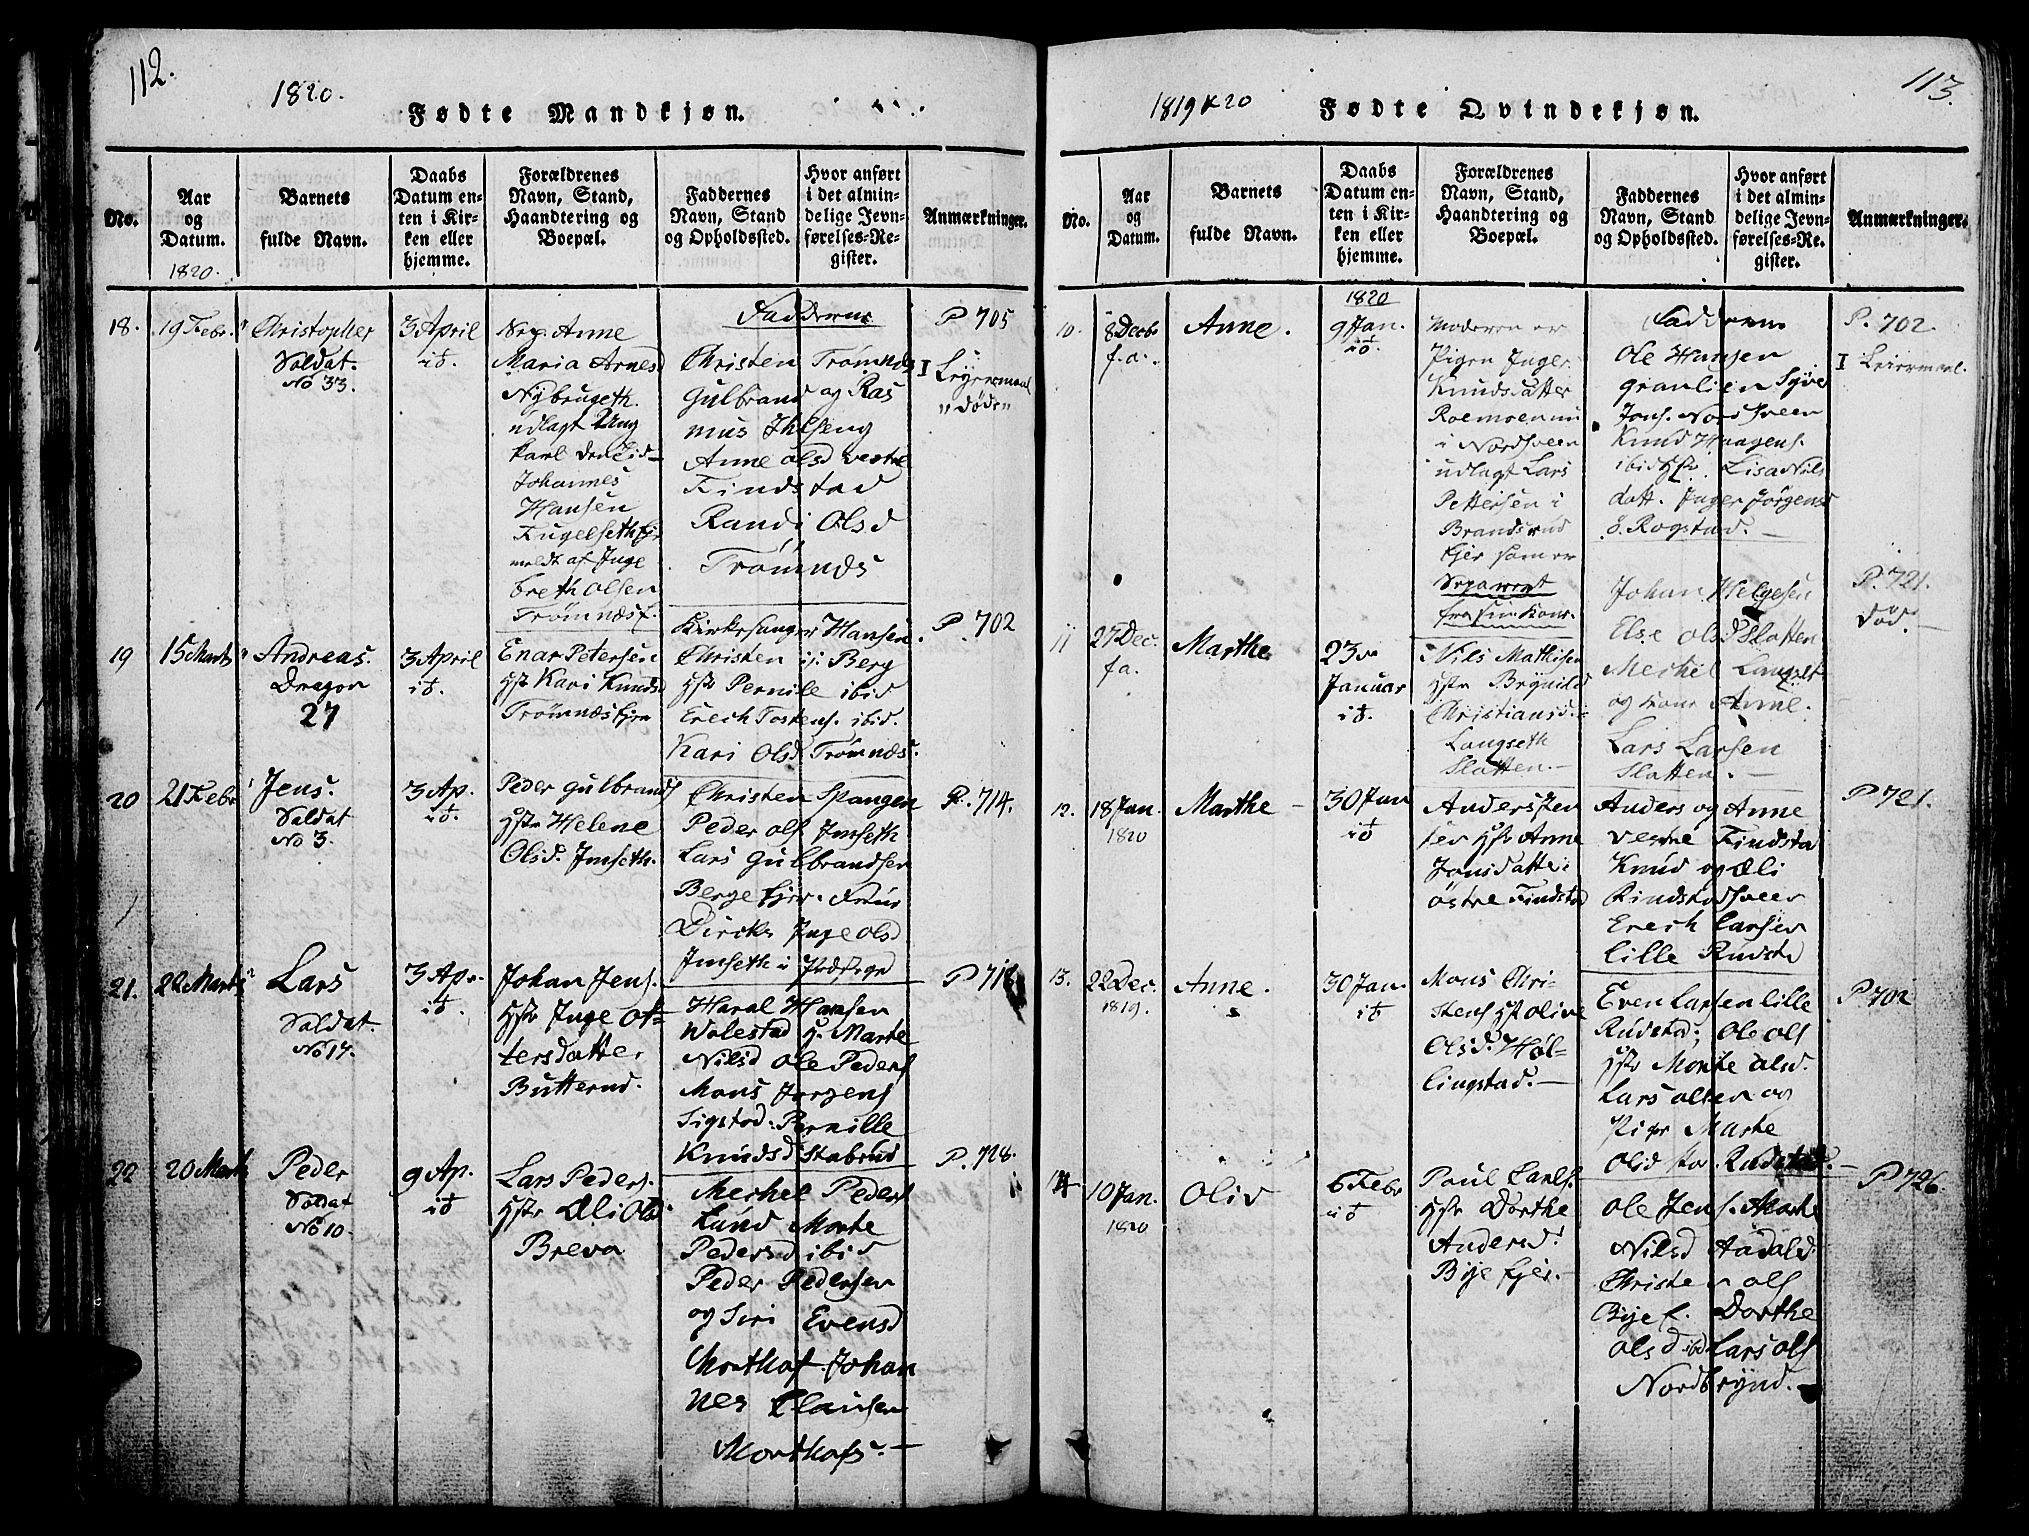 112.
1820.
Fødte Mandkjøn.
No.
Aar
og
Datum.
1820.
Barnets
fulde Navn.
Daabs
Datum en-
ten i Kir-
ken eller
hjemme.
Forældrenes
Navn, Stand,
Haandtering og
Boepæl.
Faddernes
Navn, Stand
og Opholdssted.
Hvor anført
i det almin-
delige Jevn-
førelses-Re-
gister.
Anmærkninger.
18.
19 Febr.
Christopher
Soldat.
No 33.
3 April
Anne
Maria Arnesd
Nybrugeth.
udlagt Ung
karl
Johannes
Hansen
Fugelseth
meldt af Inge
breth Olsen
Trømnæs
Fadderne
Christen Trømnæs
Gulbrand og Ras
mus Ihlseng
Anne Olsd vestre
Findstad
Randi Olsd
Trømnæs
P 705
I
Leyermaal
"døde"
19
15 Marts
Andreas.
Dragon
27
3 April
Enar Petersen
Hstr Kari Knuds
Trømnæs Ejer
Kirkesanger Hansen
Christen i Berg
Hstr Pernile ibid
Erech Tostens. ibid.
Kari Olsd Trømnæs.
P. 702
20
21 Febr
Jens.
Soldat
No 3.
3 Ap.
Peder Gulbrands
Hstr Helene
Olsd. Imseth.
Christen Spangen
Peder Ols Imseth
Lars Gulbrandsen
Berge Ejer.
Dircke Inge Olsd
Imseth i
P. 714.
21.
22 Marts
Lars
Soldat.
No 14.
3 Apr.
Johan Jens.
Hstr Inge Ot-
tersdatter
Butterud.
Haral Hansen
Wolestad H. Marte
Nilsd Ole Peders
Mons Jørgens
Sigstad. Pernille
Knudsd Stabrud
P 718
22
20 Marts
Peder
Soldat
No 10.
9 Ap.
Lars Peders.
Hstr Æli Olsd
Breva
Mechel Peders
Lund Marte
Pedersd ibid
Peder Pedersen
og Siri Evensd
Morthof Johan
nes Clausen
Morthofs.
P. 728.
113.
1819 & 20
Fødte Qvindekjøn.
No.
Aar
og
Datum.
Barnets
fulde Navn.
Daabs
Datum en-
ten i Kir-
ken eller
hjemme.
Forældrenes
Navn, Stand,
Haandtering og
Boepæl.
Faddernes
Navn, Stand
og Opholdssted.
Hvor anført
i det almin-
delige Jevn-
førelses-Re-
gister.
Anmærkninger.
10.
8 Decb.
f. a.
Anne.
1820
9 Jan.
Moderen er
Pigen Inger
Knudsdatter
Roemoen nu
i Nordsveen
udlagt Lars
Pettersen i
Brandsrud
Ejer som er
Separert
fra sin Kone.
Fadderne
Ole Hansen
Granlien Syver
Jons. Nordsveen
Knud Haagens.
ibid Hstr Lisa Nils
datt. Inger Jørgensd
ö. Rogstad.
P. 702.
I Leiermaal.
11
27 Dec.
f a.
Marthe
23de
Januar
Nils Mathisen
Hstr Brynild
Christiansd.
Langseth
Slatten.
Johan Helgesen
Else Olsd Slatten
Mechel Langset
og Kone Anne.
Lars Larsen
Slatten.
P. 721.
Død.
12.
18 Jan.
1820
Marthe
30 Jan
Anders Sten
sen Hstr Anne
Jonsdatter
östre Findstad
Anders og Anne
vestre Findstad
Knud og Æli
Rindstadsveen
Erech Larsen
lille Rudsta
P. 721.
13.
22 Dec.
1819.
Anne.
30 Jan.
Mons Chri-
stens Hst Olive
Olsd. Høl-
lingstad.
Even Larsen lille
Rudstad; Ole Ols
Hstr Marthe
Lars Olsen og
Piger Marte
Olsd Rudstad.
P 702
14
10 Jan.
1820
Oliv
6 Febr
Paul Carls.
Hstr Dorthe
Andersd.
Bye Ejer.
Ole Jens. Marte
Nilsd Aadald
Christen Ols
Bye Dorthe
Olsd ibd Lars Ols
Nordbrynd.
P 726.